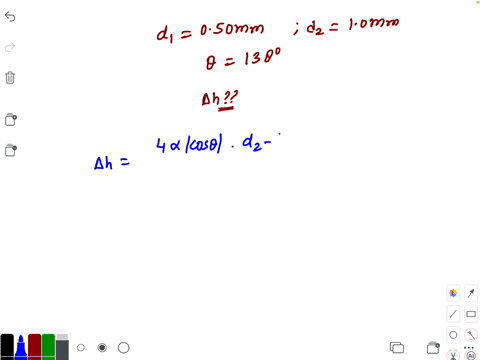 d₁ = 0.50mm ; d₂ = 1.0mm
θ = 138°
Δh ??
Δh = 4α|cosθ| . d₂ -